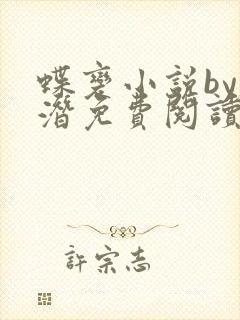 蝶蛊小说by
潛免費閱讀
許宗志